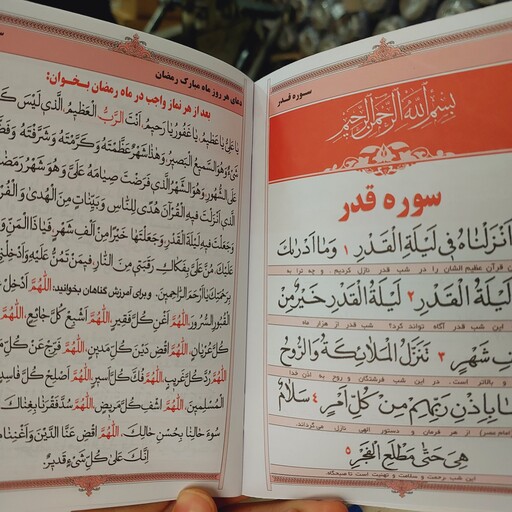 سوره قدر
بِسْمِ اللّٰهِ الرَّحْمٰنِ الرَّحِيْمِ
سوره قدر
اَنْزَلْناهُ فی لَیْلَةِ الْقَدْرِ ۱ وَما اَدْریٰكَ
قرآن عظیم الشان را در شب قدر نازل کردیم و چه ترا به
لَیْلَةُ الْقَدْرِ ۲ لَیْلَةُ الْقَدْرِ خَیْرٌ مِنْ
این شب قدر آگاه تواند کرد؟ شب قدر از هزار ماه
شَهْرٍ ۳ تَنَزَّلُ الْمَلائِكَةُ وَالرُّوحُ
و بالاتر است. در این شب فرشتگان و روح به اذن خدا
بِاِذْنِ رَبِّهِمْ مِنْ كُلِّ اَمْرٍ ۴ سَلامٌ
از هر فرمان و دستور الهی نازل می‌گرداند.
هِیَ حَتّیٰ مَطْلَعِ الْفَجْرِ ۵
این شب رحمت و سلامت و تهنیت است تا صبحگاه.
دعای هر روز ماه مبارک رمضان
بعد از هر نماز واجب در ماه رمضان بخوان:
یا عَلِیُّ یا عَظیمُ، یا غَفُورُ یا رَحیمُ، اَنْتَ الرَّبُّ الْعَظیمُ الَّذی لَیْسَ كَ
شَیْءٌ وَهُوَ السَّمیعُ الْبَصیرُ، وَهٰذا شَهْرٌ عَظَّمْتَهُ وَكَرَّمْتَهُ وَشَرَّفْتَهُ وَفَضَّ
عَلَی الشُّهُورِ، وَهُوَ الشَّهْرُ الَّذی فَرَضْتَ صِیامَهُ عَلَیَّ، وَهُوَ شَهْرُ رَمَضـ
الَّذی اَنْزَلْتَ فیهِ الْقُرْآنَ هُدًی لِلنّاسِ وَبَیِّناتٍ مِنَ الْهُدیٰ وَالْفُرْ
وَجَعَلْتَ فیهِ لَیْلَةَ الْقَدْرِ، وَجَعَلْتَها خَیْرًا مِنْ اَلْفِ شَهْرٍ، فَیا ذَا الْمَنِّ وَ
عَلَیْكَ مُنَّ عَلَیَّ بِفَكاكِ رَقَبَتی مِنَ النّارِ، فیمَنْ تَمُنُّ عَلَیْهِ وَاَدْخِلْنِی
بِرَحْمَتِكَ یا اَرْحَمَ الرّاحِمینَ. وبرای آمرزش گناهان بخوانید: اَللّٰهُمَّ اَدْخِلْ
الْقُبُورِ السُّرُورَ، اَللّٰهُمَّ اَغْنِ كُلَّ فَقیرٍ، اَللّٰهُمَّ اَشْبِعْ كُلَّ جائِعٍ، اَللّٰهُمَّ
كُلَّ عُرْیانٍ، اَللّٰهُمَّ اقْضِ دَیْنَ كُلِّ مَدینٍ، اَللّٰهُمَّ فَرِّجْ عَنْ كُلِّ مَ
اَللّٰهُمَّ رُدَّ كُلَّ غَریبٍ، اَللّٰهُمَّ فُكَّ كُلَّ اَسیرٍ، اَللّٰهُمَّ اَصْلِحْ كُلَّ فاسِدٍ
الْمُسْلِمینَ، اَللّٰهُمَّ اشْفِ كُلَّ مَریضٍ، اَللّٰهُمَّ سُدَّ فَقْرَنا بِغِناكَ
سُوءَ حالِنا بِحُسْنِ حالِكَ، اَللّٰهُمَّ اقْضِ عَنَّا الدَّیْنَ وَاَغْنِنا مِ
اِنَّكَ عَلیٰ كُلِّ شَیْءٍ قَدیرٌ.